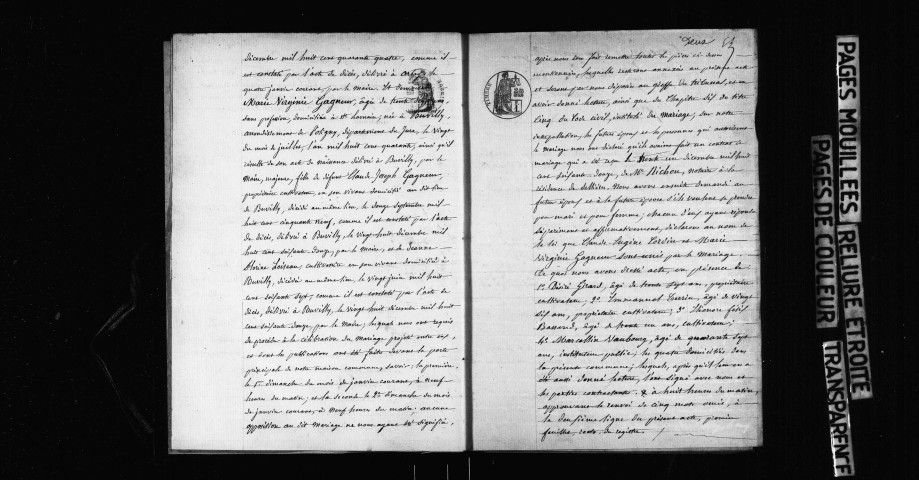 décembre mil huit cent quarante quatre, comme il
est constaté par l'acte de décès, délivré à
quatre janvier courant, par le maire. Et
Marie Virginie Gagneur, âgée de trente
sans profession, domiciliée à St Lamain, née à Buvilly,
arrondissement de Poligny, département du Jura, le vingt
du mois de juillet, l'an mil huit cent quarante, ainsi qu'il
résulte de son acte de naissance délivré à Buvilly, par le
Maire, majeure, fille de défunt Claude Joseph Gagneur,
propriétaire cultivateur, en son vivant domicilié au dit lieu
de Buvilly, décédé au même lieu, le douze septembre mil
huit cent cinquante neuf, comme il est constaté par l'acte
de décès, délivré à Buvilly, le vingt huit décembre mil
huit cent soixante douze, par le maire, et de Jeanne
Loiseau, cultivatrice en son vivant domiciliée à
Buvilly, décédée au même lieu, le vingt juin mil huit
cent soixante sept, comme il est constaté par l'acte de
décès, délivré à Buvilly, le vingt huit décembre mil huit
cent soixante douze, par le maire, lesquels nous ont requis
de procéder à la célébration du mariage projeté entre eux,
et dont les publications ont été faites devant la porte
principale de notre maison commune, savoir: la première,
le 1er dimanche du mois de janvier courant, à neuf
heures du matin, et la seconde le 2e dimanche du mois
de janvier courant, à neuf heures du matin, aucune
opposition au dit mariage ne nous ayant été signifiée,
Deux
après nous être fait remettre toutes les pièces ci-dessus
mentionnées, lesquelles resteront annexées au présent acte
et seront par nous déposées au greffe du tribunal, et en
avoir donné lecture, ainsi que du Chapitre six du titre
cinq du Code civil, intitulé du mariage, sur notre
interpellation, les futurs époux et les personnes qui autorisent
le mariage nous ont déclaré qu'ils avaient fait un contrat de
mariage qui a été reçu le trente un décembre mil huit
cent soixante douze, de Me Bichon, notaire à la
résidence de Sellières. Nous avons ensuite demandé au
futur époux et à la future épouse s'ils veulent se prendre
pour mari et pour femme, chacun d'eux ayant répondu
séparément et affirmativement, déclarons au nom de
la loi que Claude Eugène et Marie
Virginie Gagneur sont unis par le mariage.
De quoi nous avons dressé acte, en présence de
1° Désiré Girard, âgé de trente sept ans, propriétaire
cultivateur, 2° Emmanuel âgé de vingt
sept ans, propriétaire cultivateur, 3° Honoré
Bassard, âgé de trente un ans, cultivateur,
4° Marcellin Vaubourg, âgé de quarante sept
ans, instituteur public, les quatre domiciliés dans
la présente commune; lesquels, après qu'il leur en a
été aussi donné lecture, l'ont signé avec nous et
les parties contractantes. à huit heures du matin,
approuvons le renvoi de cinq mots omis, à
la douzième ligne du présent acte, premier
feuillet, recto, du registre.
PAGES MOUILLEES, RELIURE ETROITE
PAGES DE COULEUR
TRANSPARENCE